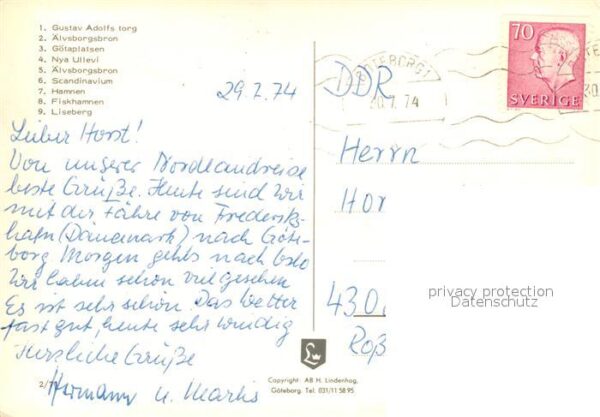 1. Gustav Adolfs torg
2. Älvsborgsbron
3. Götaplatsen
4. Nya Ullevi
5. Älvsborgsbron
6. Scandinavium
7. Hamnen
8. Fiskhamnen
9. Liseberg
29.7.74
Lieber Horst!
Von unserer Nordlandreise
beste Grüße. Heute sind wir
mit der Fähre von Frederiks-
hafn (Dänemark) nach Göte-
borg Morgen gehts nach Oslo
Wir haben schon viel gesehen
Es ist sehr schön. Das Wetter
fast gut, heute sehr windig
Herzliche Grüße
Hermann u.
2/7
Copyright: AB H. Lindenhag,
Göteborg. Tel. 031/11 58 95
70
SVERIGE
GÖTEBORG 1
30.7.74
DDR
Herrn
Hor
430
Roß
privacy protection
Datenschutz